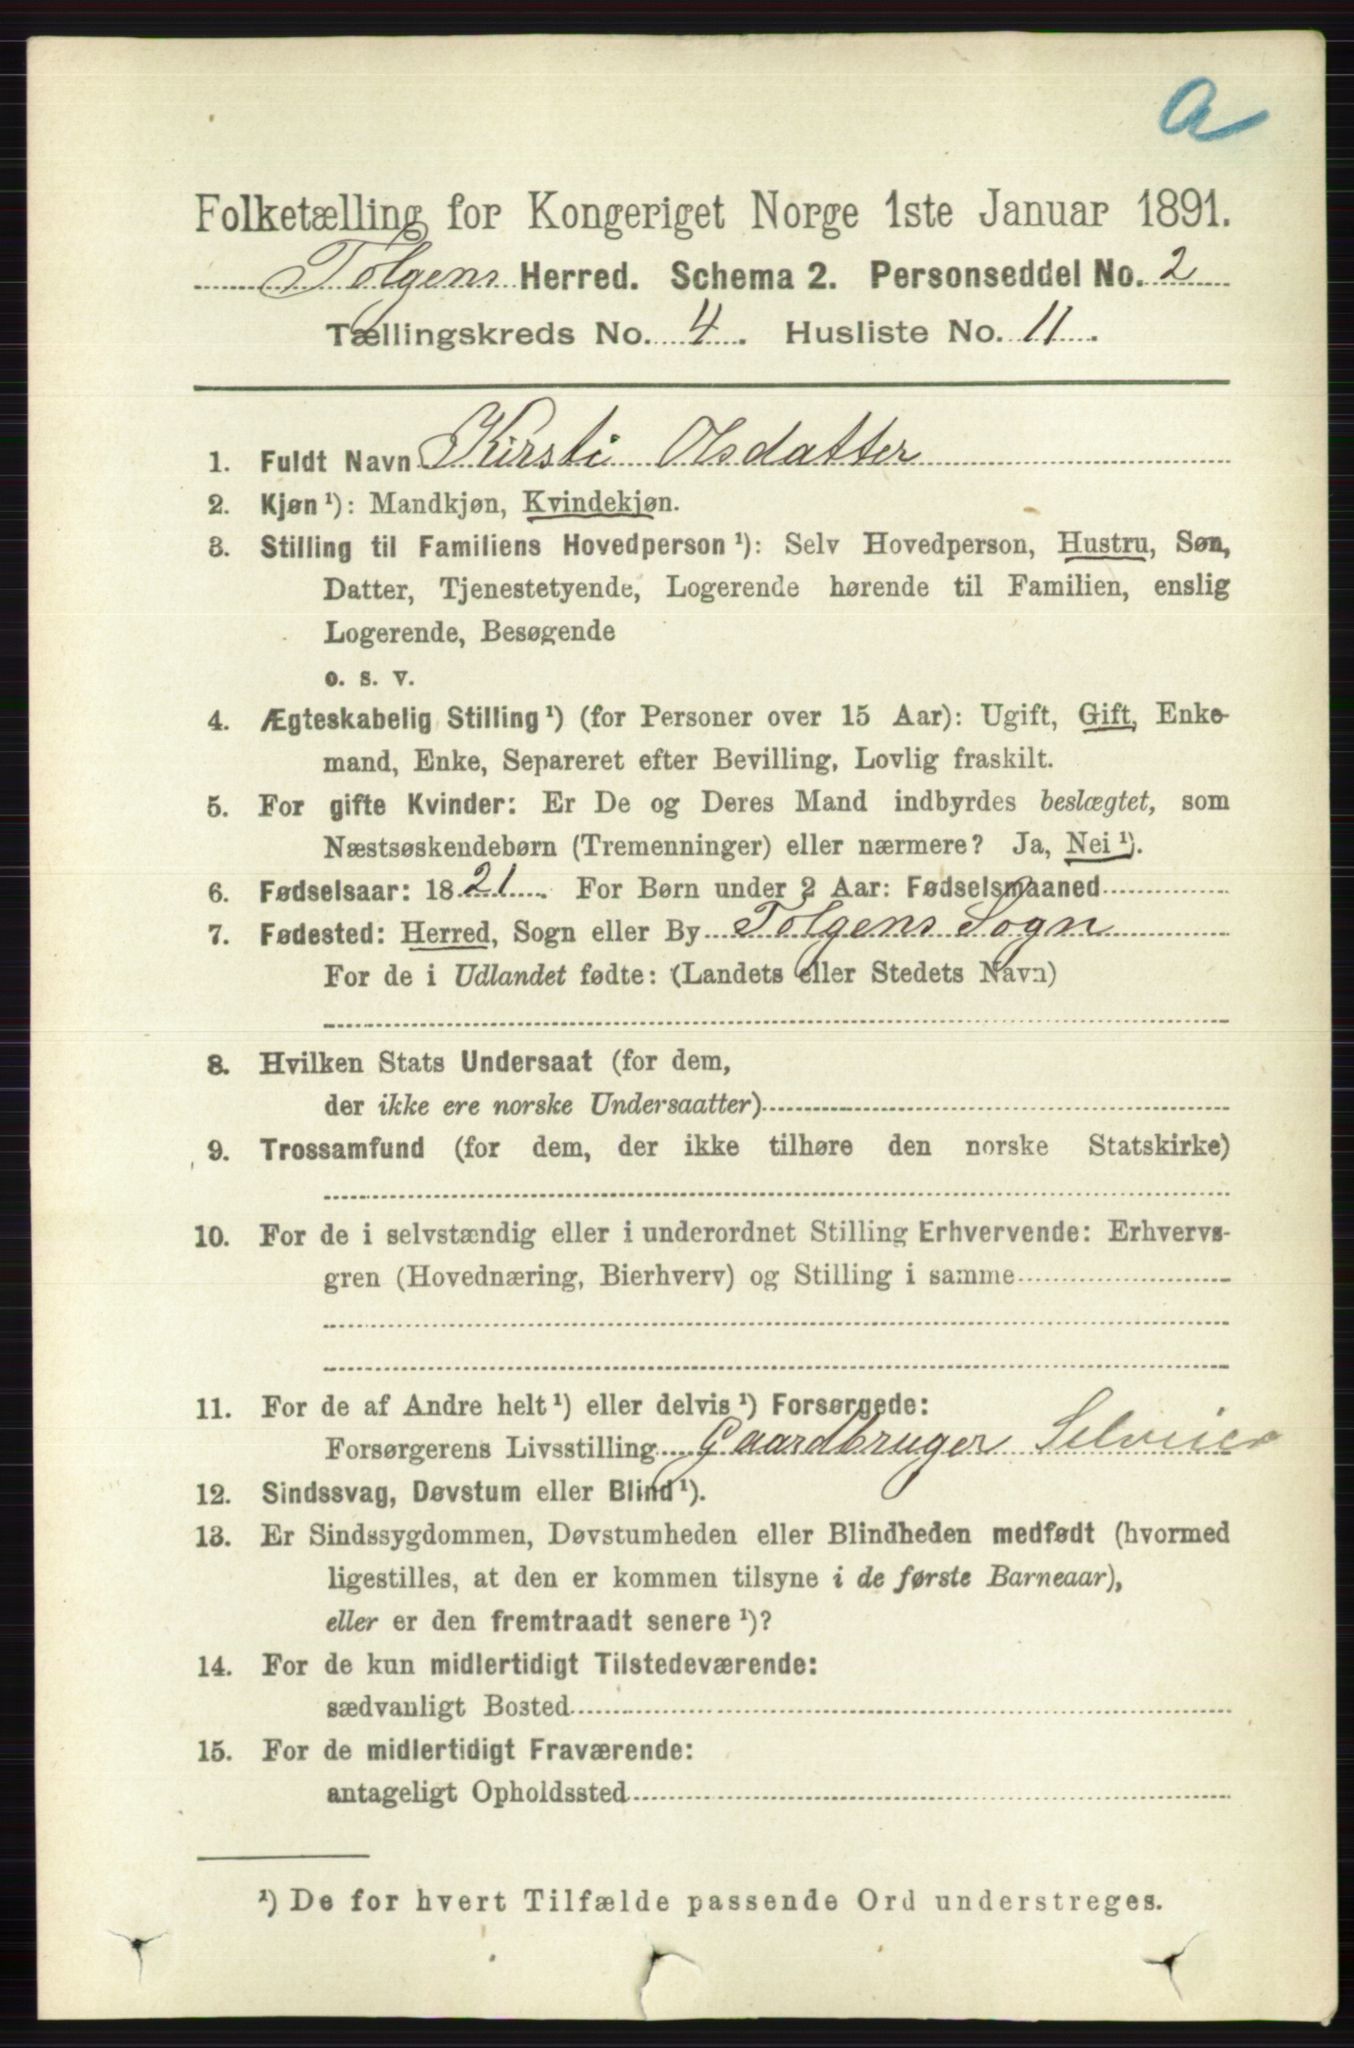 a
Folketælling for Kongeriget Norge 1ste Januar 1891.
Tolgens Herred. Schema 2. Personseddel No. 2
Tællingskreds No. 4. Husliste No. 11.
1. Fuldt Navn Kirsti Olsdatter
2. Kjøn ¹): Mandkjøn, Kvindekjøn.
3. Stilling til Familiens Hovedperson ¹): Selv Hovedperson, Hustru, Søn,
Datter, Tjenestetyende, Logerende hørende til Familien, enslig
Logerende, Besøgende
o. s. v.
4. Ægteskabelig Stilling ¹) (for Personer over 15 Aar): Ugift, Gift, Enke-
mand, Enke, Separeret efter Bevilling, Lovlig fraskilt.
5. For gifte Kvinder: Er De og Deres Mand indbyrdes beslægtet, som
Næstsøskendebørn (Tremenninger) eller nærmere? Ja, Nei ¹).
6. Fødselsaar: 1821. For Børn under 2 Aar: Fødselsmaaned
7. Fødested: Herred, Sogn eller By Tolgens Sogn
For de i Udlandet fødte: (Landets eller Stedets Navn)
8. Hvilken Stats Undersaat (for dem,
der ikke ere norske Undersaatter)
9. Trossamfund (for dem, der ikke tilhøre den norske Statskirke)
10. For de i selvstændig eller i underordnet Stilling Erhvervende: Erhvervs-
gren (Hovednæring, Bierhverv) og Stilling i samme
11. For de af Andre helt ¹) eller delvis ¹) Forsørgede:
Forsørgerens Livsstilling Gaardbruger Selveier
12. Sindssvag, Døvstum eller Blind ¹).
13. Er Sindssygdommen, Døvstumheden eller Blindheden medfødt (hvormed
ligestilles, at den er kommen tilsyne i de første Barneaar),
eller er den fremtraadt senere ¹)?
14. For de kun midlertidigt Tilstedeværende:
sædvanligt Bosted
15. For de midlertidigt Fraværende:
antageligt Opholdssted
¹) De for hvert Tilfælde passende Ord understreges.